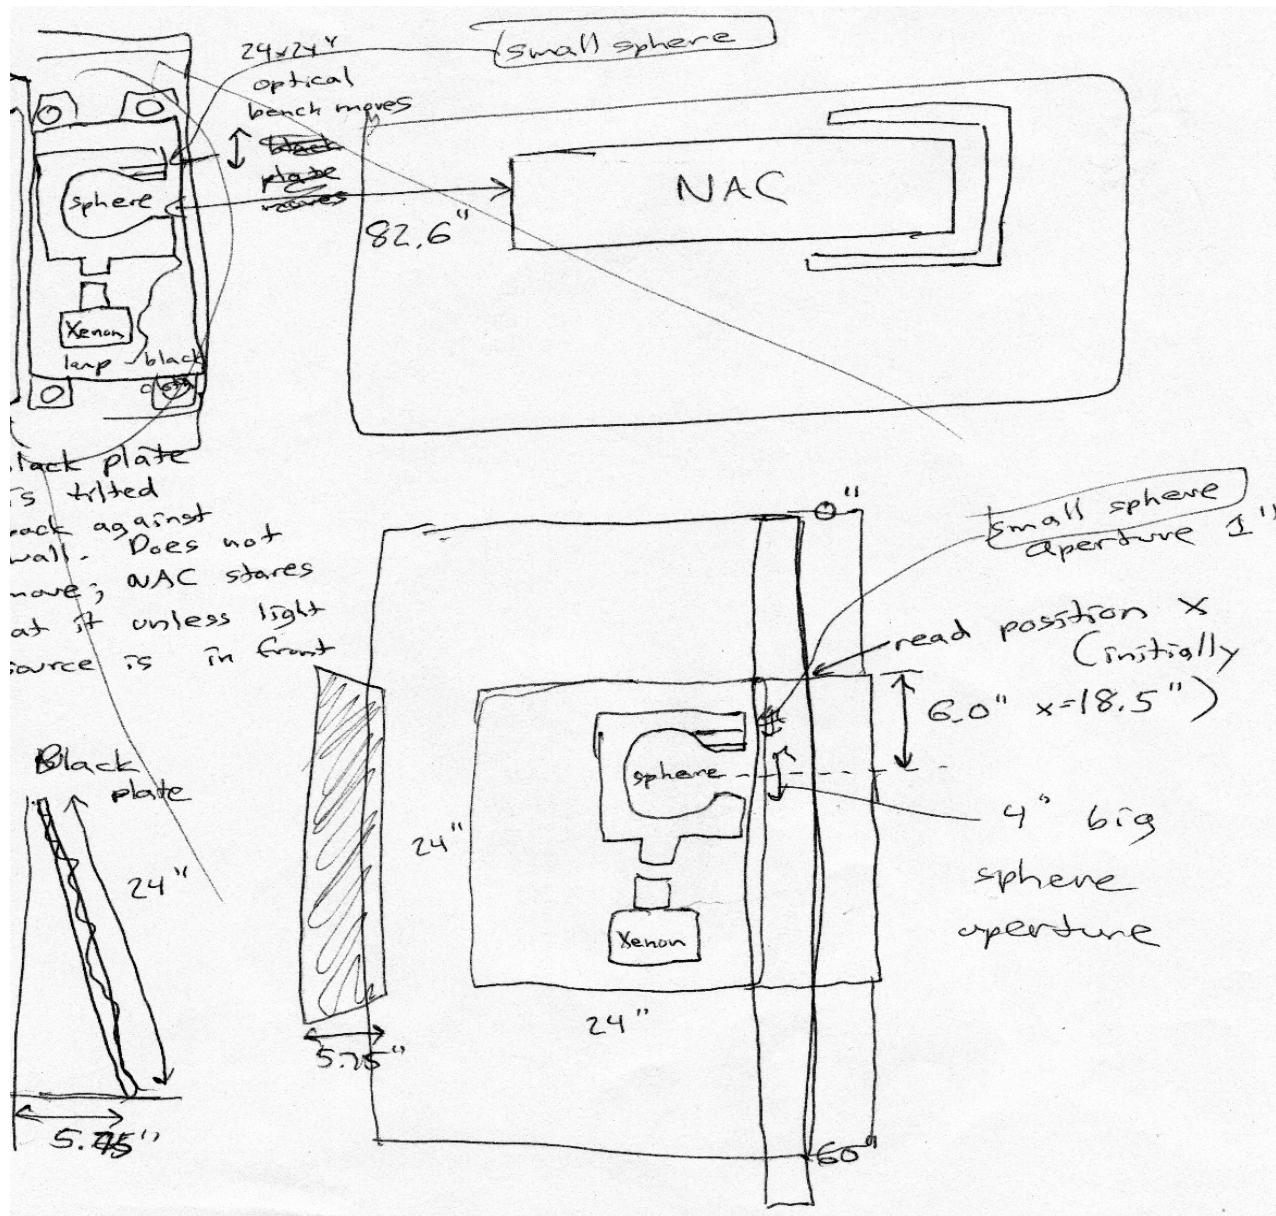 24x24"
optical
bench moves
black
plate
moves
small sphere
sphere
82.6"
NAC
Xenon
lamp
black
cloth
lack plate
is tilted
back against
wall. Does not
move; NAC stares
at it unless light
source is in front
Black
plate
24"
5.75"
0"
small sphere
aperture 1"
read position x
(initially
6.0" x=18.5")
sphere
4" big
sphere
aperture
24"
Xenon
24"
5.75"
60"